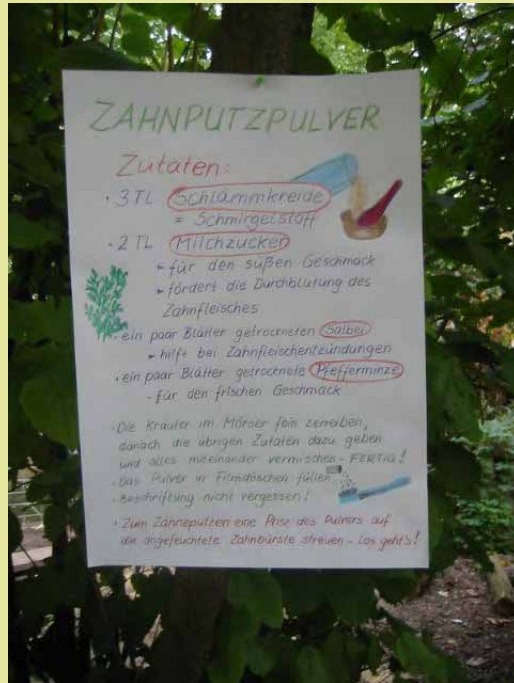 ZAHNPUTZPULVER
Zutaten:
• 3 TL Schlämmkreide
= Schmirgelstoff
• 2 TL Milchzucker
- für den süßen Geschmack
- fördert die Durchblutung des
Zahnfleisches
• ein paar Blätter getrockneten Salbei
- hilft bei Zahnfleischentzündungen
• ein paar Blätter getrocknete Pfefferminze
- für den frischen Geschmack
• Die Kräuter im Mörser fein zerreiben,
danach die übrigen Zutaten dazu geben
und alles miteinander vermischen - FERTIG!
• Das Pulver in Filmdöschen füllen
• Beschriftung nicht vergessen!
• Zum Zähneputzen eine Prise des Pulvers auf
die angefeuchtete Zahnbürste streuen - Los geht's!